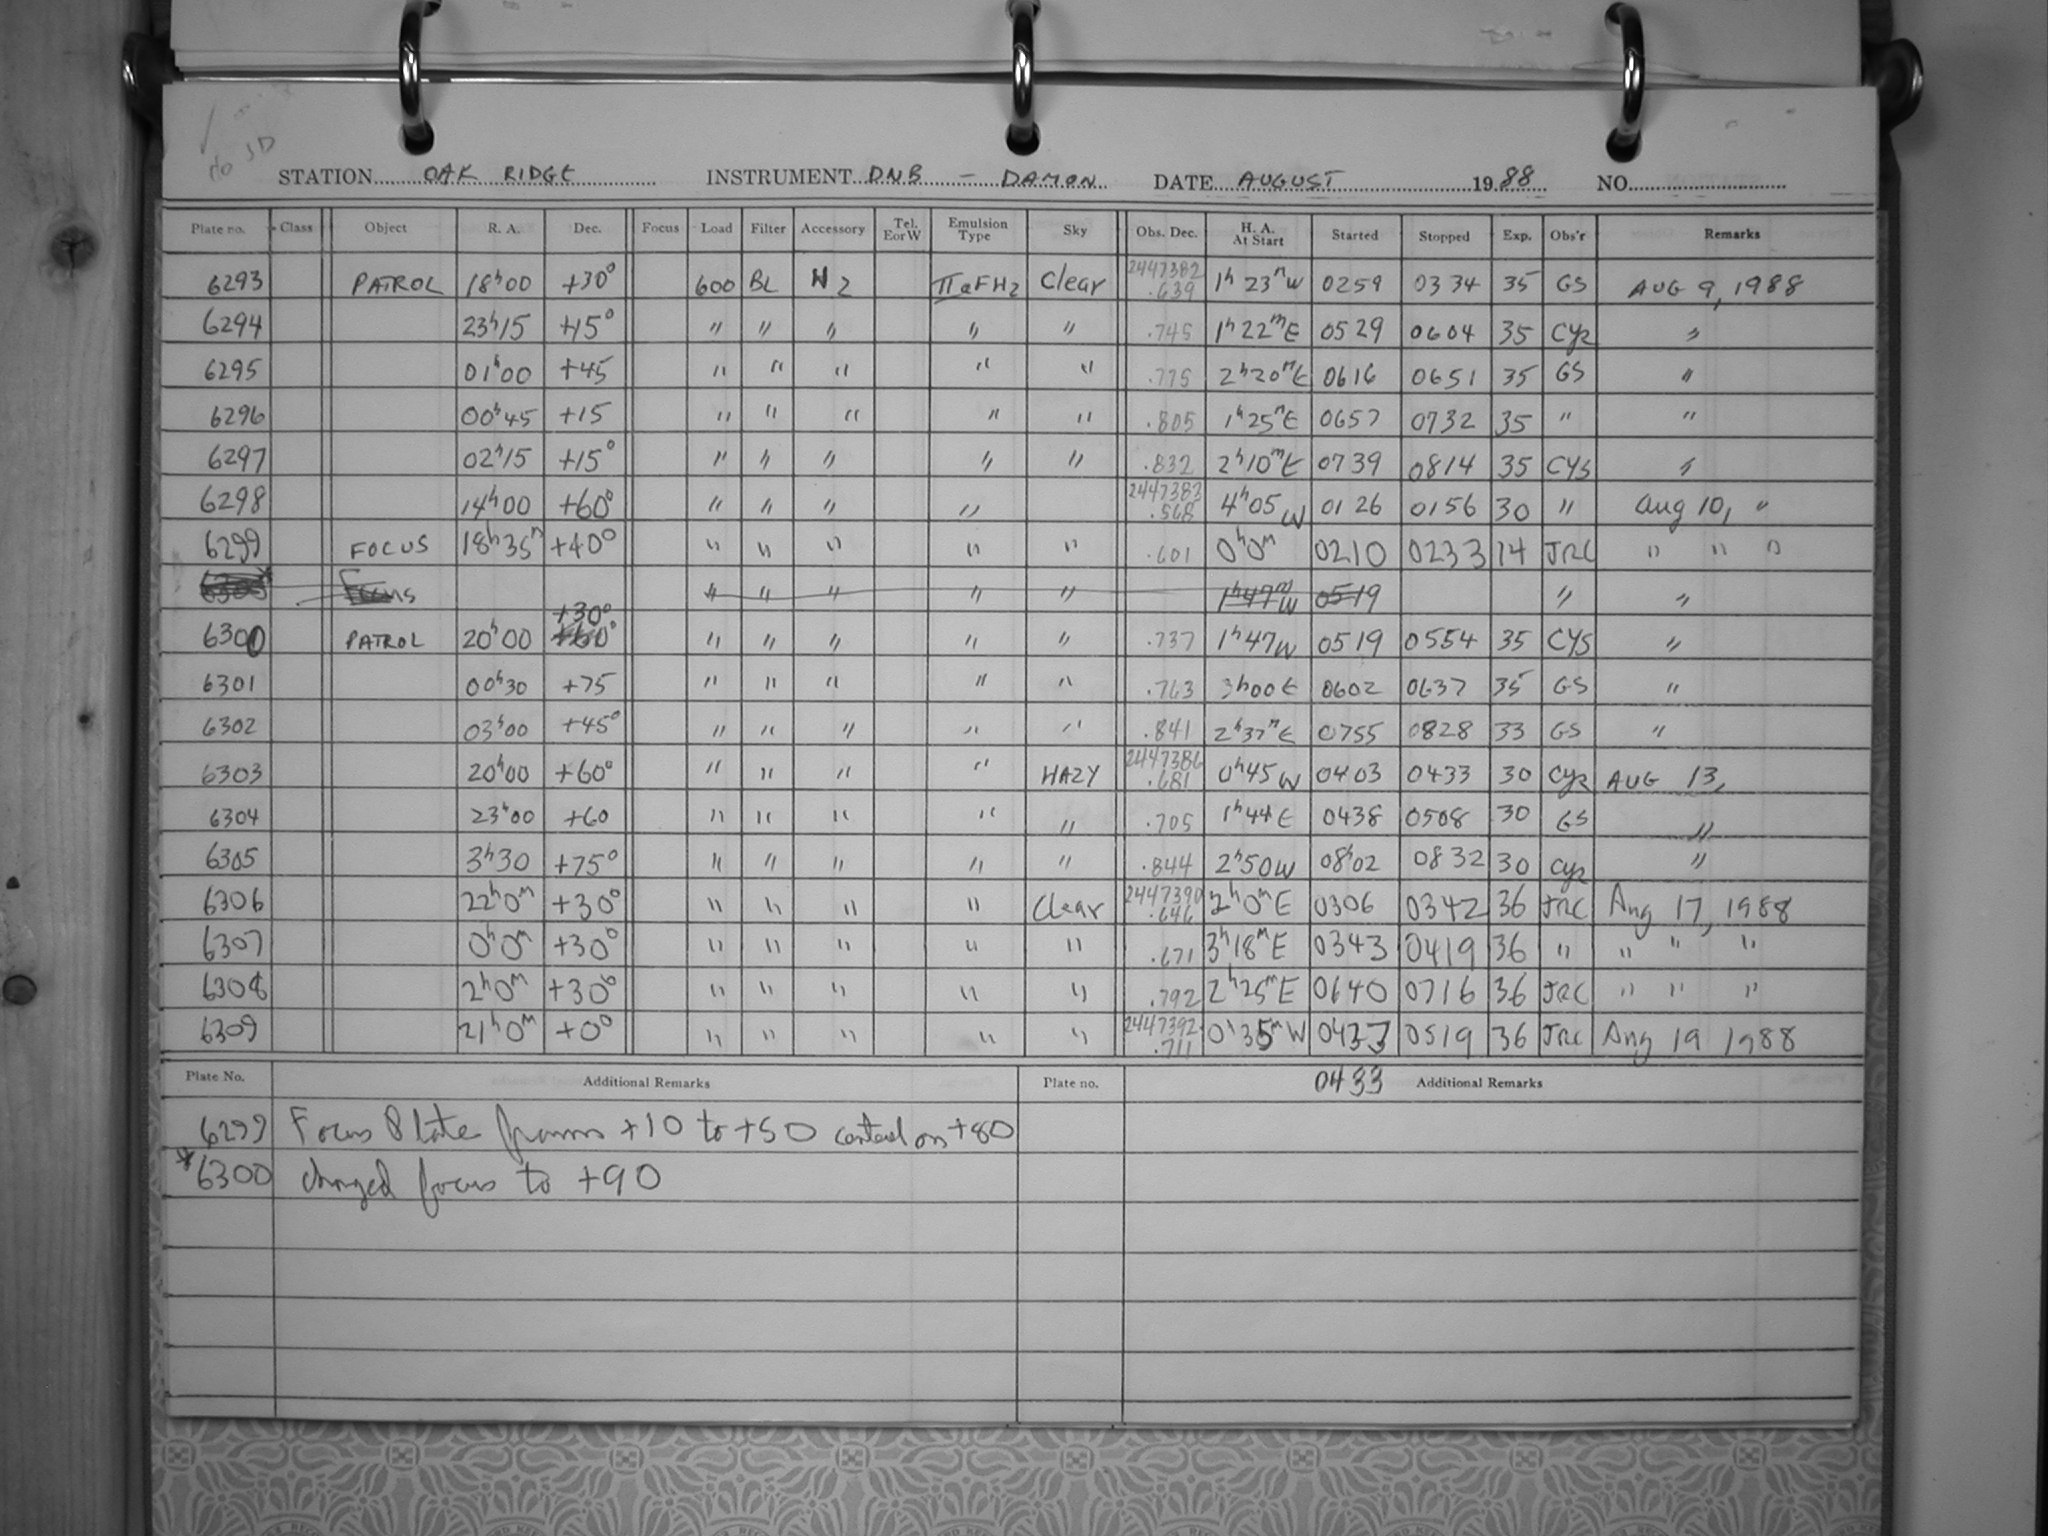 no JD
STATION OAK RIDGE INSTRUMENT DNB - DAMON DATE AUGUST 1988 NO.
Plate no. Class Object R. A. Dec. Focus Load Filter Accessory Tel. E or W Emulsion Type Sky Obs. Dec. H. A. At Start Started Stopped Exp. Obs'r Remarks
6293 PATROL 18h00 +30° 600 BL N2 IIaFH2 Clear 2447382 .639 1h 23m W 0259 0334 35 GS AUG 9, 1988
6294 23h15 +15° " " " " " .745 1h22mE 0529 0604 35 Cys "
6295 01h00 +45 " " " " " .775 2h20mE 0616 0651 35 GS "
6296 00h45 +15 " " " " " .805 1h25mE 0657 0732 35 " "
6297 02h15 +15° " " " " " .832 2h10mE 0739 0814 35 CYS "
6298 14h00 +60° " " " " 2447383 .568 4h05W 0126 0156 30 " Aug 10, "
6299 FOCUS 18h35m +40° " " " " " .601 0h0m 0210 0233 14 JRC " " "
6300* Focus " " " " " 1h47mW 0519 " "
6300 PATROL 20h00 +60° +30° " " " " " .737 1h47W 0519 0554 35 CYS "
6301 00h30 +75 " " " " " .763 3h00E 0602 0637 35 GS "
6302 03h00 +45° " " " " " .841 2h37mE 0755 0828 33 GS "
6303 20h00 +60° " " " " HAZY 2447386 .681 0h45W 0403 0433 30 Cys AUG 13,
6304 23h00 +60 " " " " " .705 1h44E 0438 0508 30 GS "
6305 3h30 +75° " " " " " .844 2h50W 08h02 0832 30 Cys "
6306 22h0m +30° " " " " Clear 2447390 .646 2h0mE 0306 0342 36 JRC Aug 17, 1988
6307 0h0m +30° " " " " " .671 3h18mE 0343 0419 36 " " " "
6308 2h0m +30° " " " " " .792 2h25mE 0640 0716 36 JRC " " "
6309 21h0m +0° " " " " " 2447392 .711 0h35mW 0433 0519 36 JRC Aug 19 1988
Plate No. Additional Remarks Plate no. 0433 Additional Remarks
6299 Focus Plate from +10 to +50 centered on +80
*6300 changed focus to +90